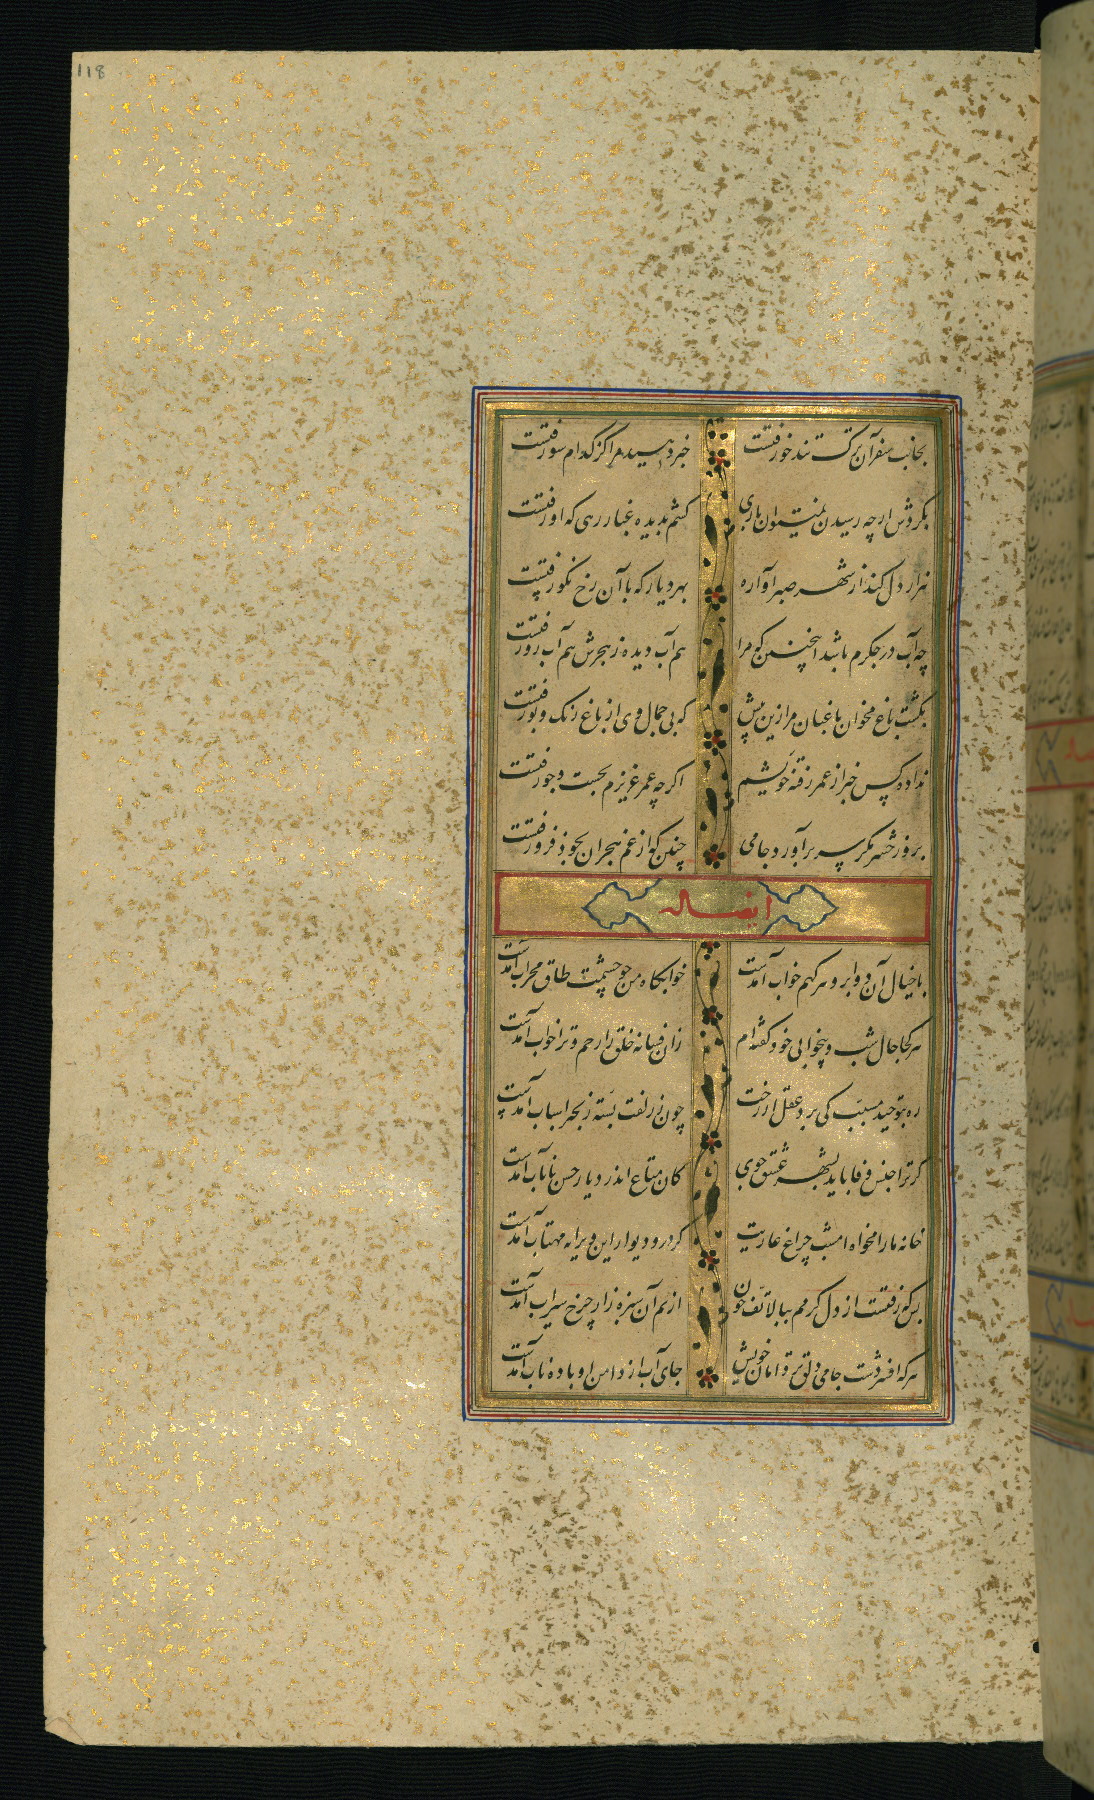 118
بجانب سفر آن ترک تند خو رفتست
خبر دهید مرا کز کدام سو رفتست
بگردش ار چه رسیدن نمیتوان باری
کشم بدیده غبار رهی که او رفتست
هزار دل کند از شهر صبر آواره
بهر دیار که با آن رخ نکو رفتست
چه آب در جگرم باشد اینچنین که مرا
هم آب دیده ز هجرش هم آب رو رفتست
بگشت باغ مخوان باغبان مرا زین پیش
که بی جمال وی از باغ رنگ و بو رفتست
نداد کس خبر از عمر رفته خویشم
اگر چه عمر عزیزم بجست و جو رفتست
بروز حشر مگر سر برآورد جامی
چنین که از غم هجران بخود فرو رفتست
ایضا له
با خیال آن دو ابرو هر گهم خواب آمدست
خوابگاه من چو چشمت طاق محراب آمدست
هر کجا حال شب و بیخوابی خود گفته ام
زان فسانه خلق را رحم و ترا خواب آمدست
ره بتوحید مسبب کی برد عقل از رخت
چون ز زلفت بسته زنجیر اسباب آمدست
گر ترا جنس وفا باید بشهر عشق جوی
کان متاع اندر دیار حسن نایاب آمدست
خانه ما را مخواه امشب چراغ عاریت
کز در و دیوار این ویرانه مهتاب آمدست
بس که رفتست از دل گرمم ببالا تف خون
از نم آن سبزه زار چرخ سیراب آمدست
هر که افشردست جامی دلق تر دامان خویش
جای آب از دامن او باده ناب آمدست